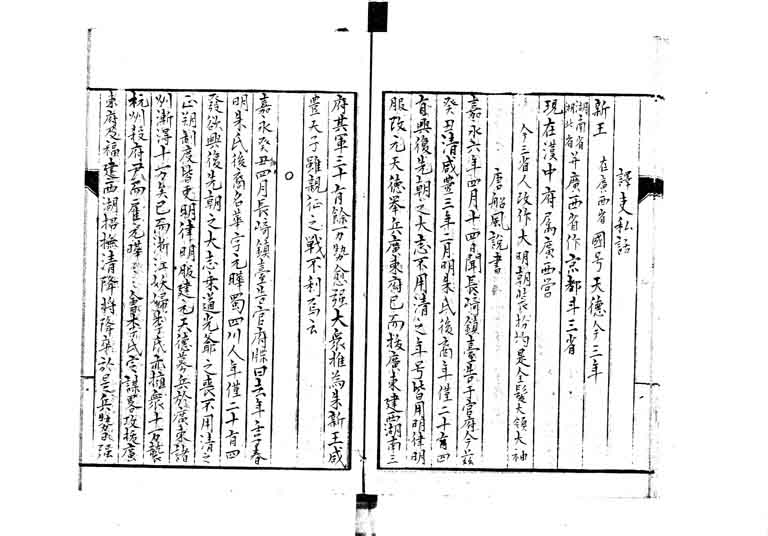 譯吏私話
新王 在廣西省國号天德今三年
湖南省湖北省并廣西省作京都斗三省
現在漢中府属廣西営
今三省人改作大明朝装扮均是全髪大領大袖
唐船風説書
嘉永六年四月十四日聞長﨑鎮臺告于官府今茲
癸丑清咸豊三年二月明朱氏後裔年僅二十有四
有興復先朝之大志不用清之年号皆用明律明
服改元天德挙兵廣東府已而抜廣東建西湖南三
府其軍三十有餘万勢愈强大衆推為朱新王咸
豊天子雖親征之戰不利焉云
○
嘉永癸丑四月長﨑鎮臺告官府牒曰去年壬子春
明朱氏後裔名華字元曄蜀四川人年僅二十有四
發欲興復先朝之大志乗道光爺之喪不用清之
正朔制度皆更明律明服建元天德募兵於廣東諸
州漸得十一万矣已而浙江妖婦朱氏亦擁衆十一万襲
杭州殺府尹而應元曄
朱氏定謀畧攻抜廣
東府及福建西湖招撫清降将降卒於是兵勢益强